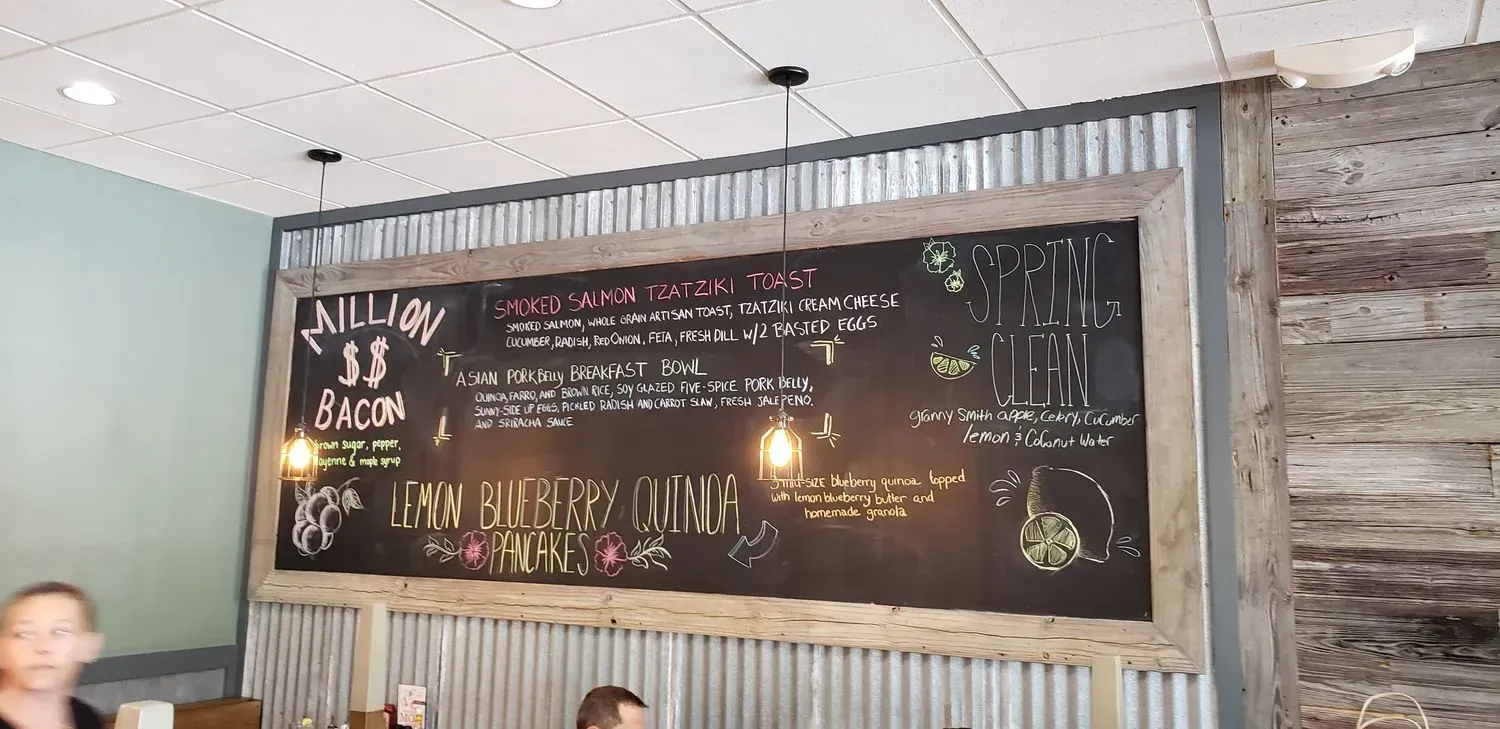 MILLION
$$
BACON
brown sugar, pepper,
cayenne & maple syrup
SMOKED SALMON TZATZIKI TOAST
SMOKED SALMON, WHOLE GRAIN ARTISAN TOAST, TZATZIKI CREAM CHEESE
CUCUMBER, RADISH, RED ONION, FETA, FRESH DILL W/2 BASTED EGGS
ASIAN PORKBELLY BREAKFAST BOWL
QUINOA, FARRO, AND BROWN RICE, SOY GLAZED FIVE-SPICE PORK BELLY,
SUNNY-SIDE UP EGGS, PICKLED RADISH AND CARROT SLAW, FRESH JALEPENO,
AND SRIRACHA SAUCE
LEMON BLUEBERRY QUINOA
PANCAKES
3 mid-SIZE blueberry quinoa topped
with lemon blueberry butter and
homemade granola
SPRING
CLEAN
granny Smith apple, Celery, Cucumber
lemon & Coconut Water